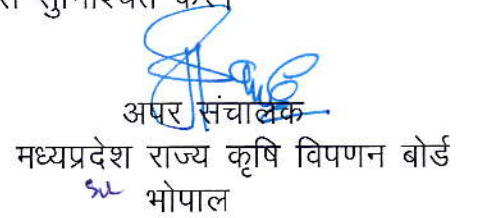 सुनिश्चित करें
अपर संचालक
मध्यप्रदेश राज्य कृषि विपणन बोर्ड
भोपाल